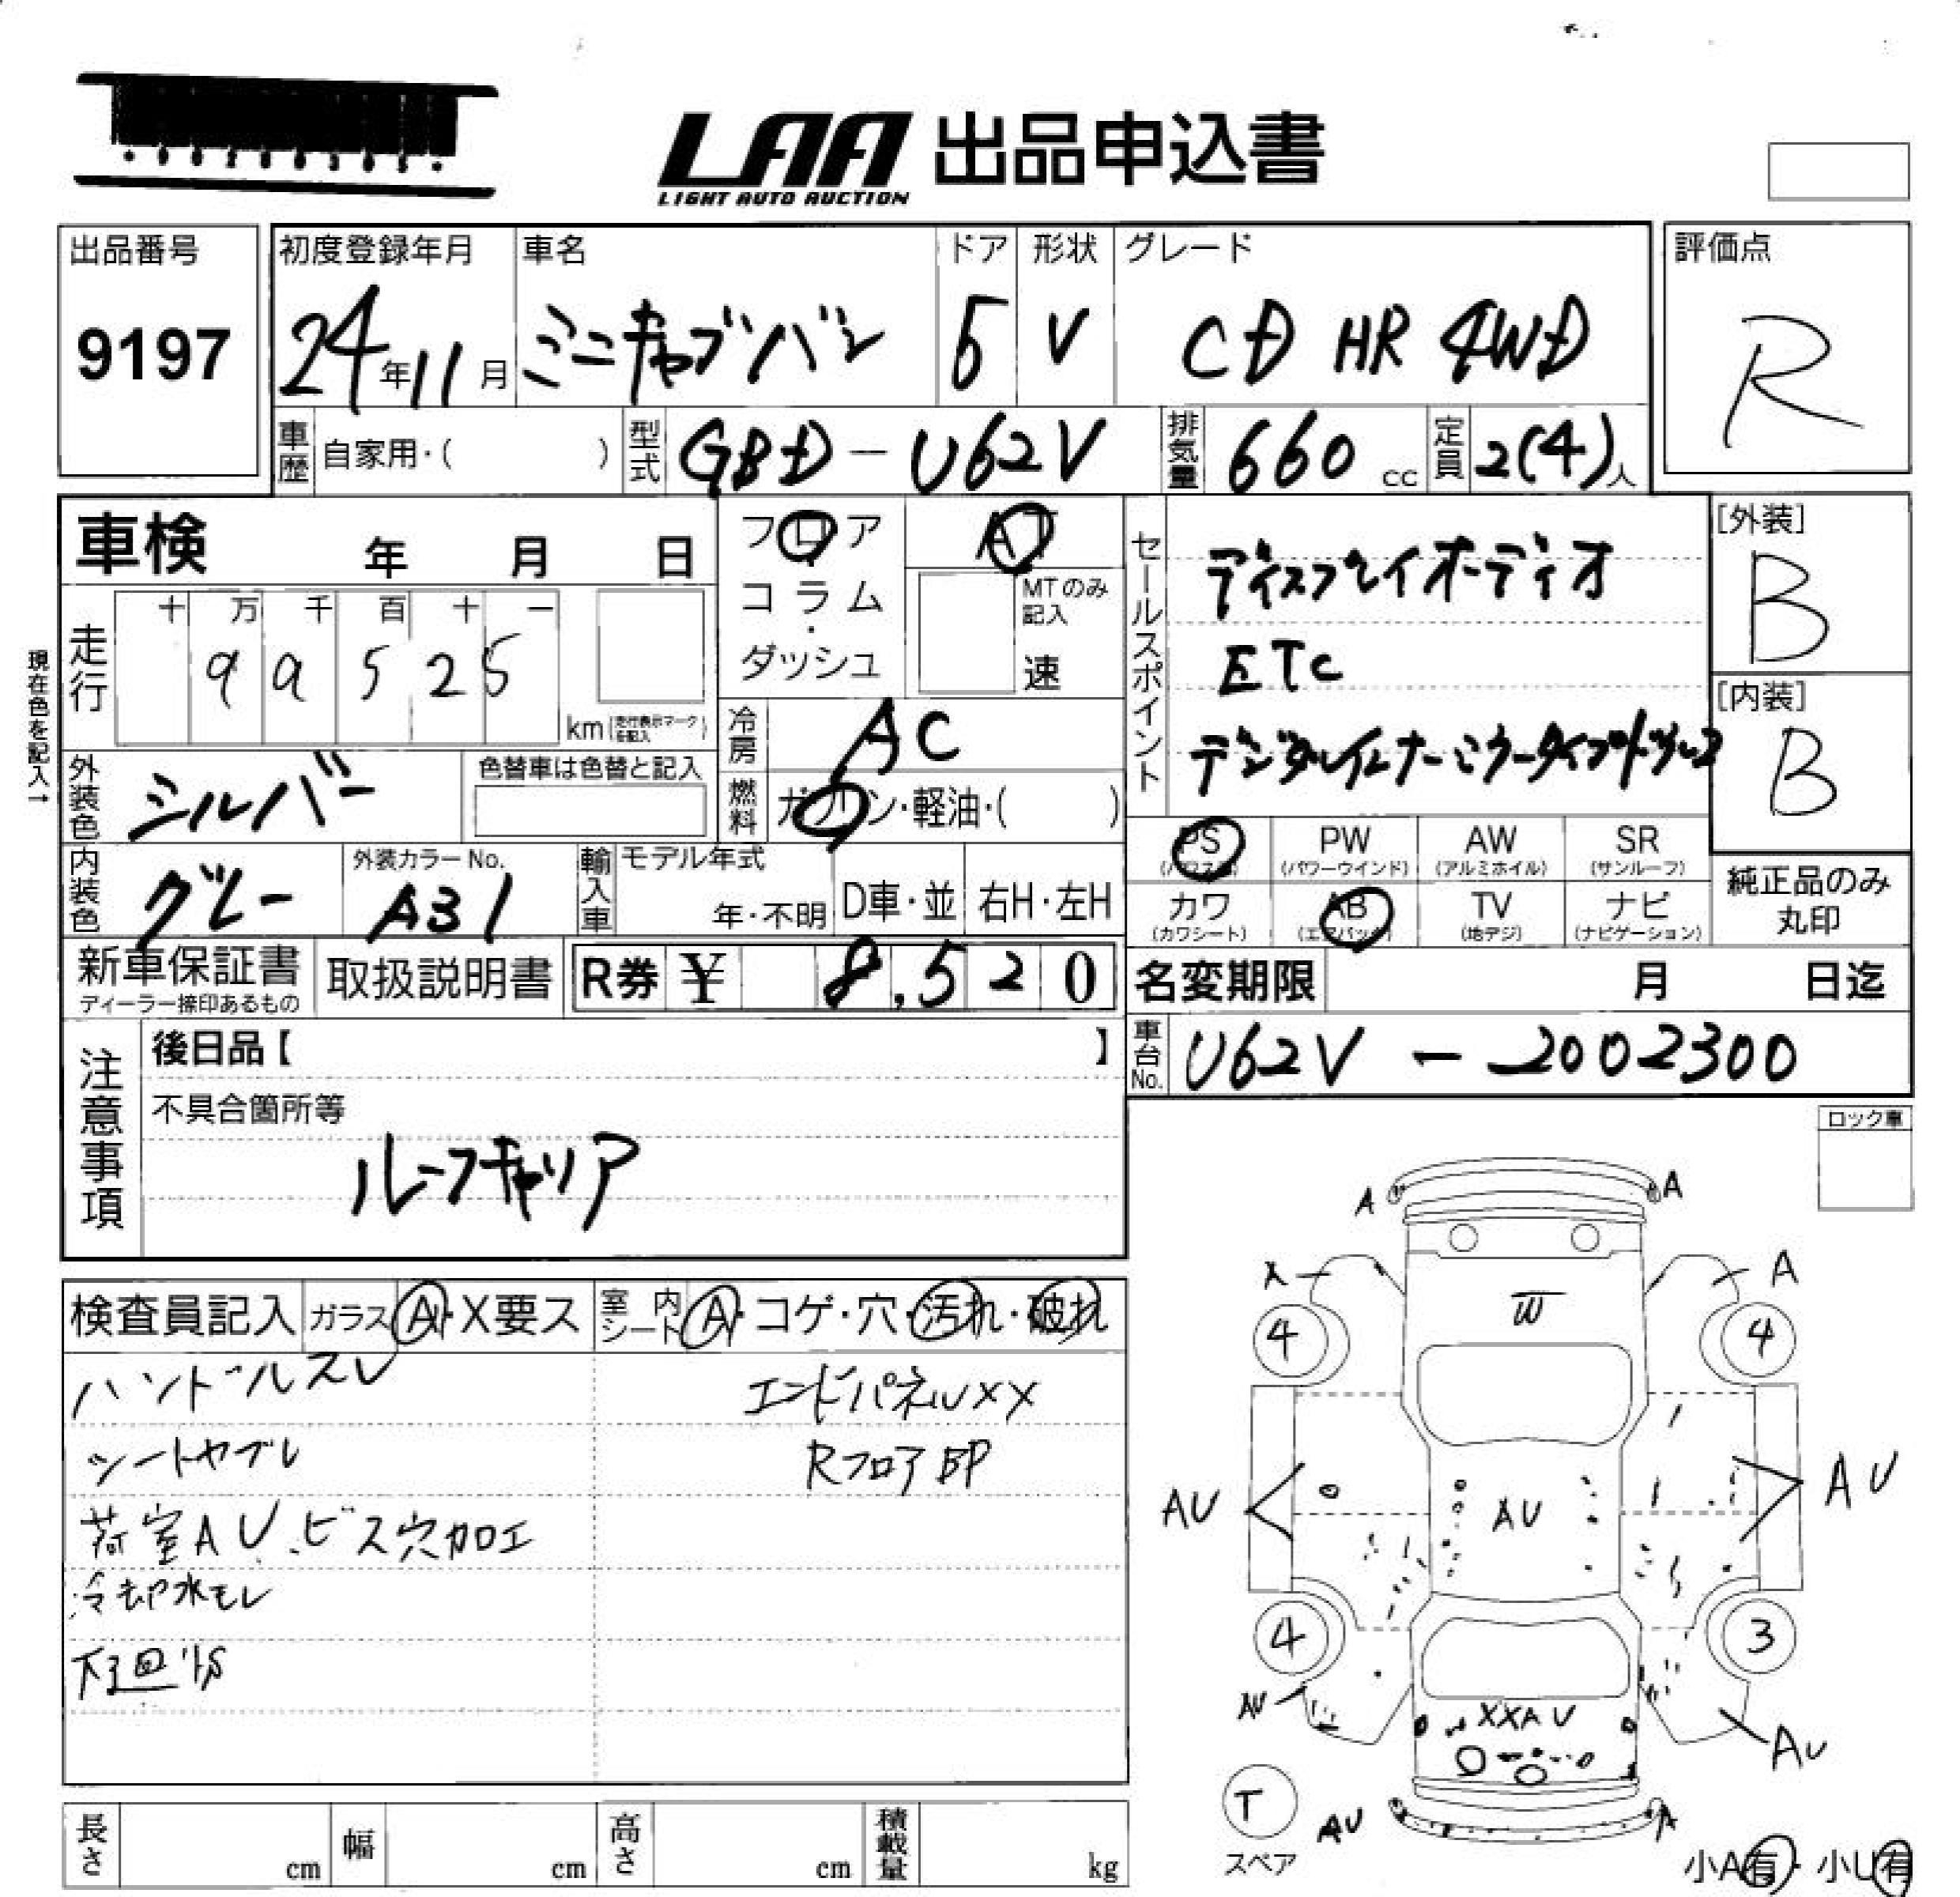 LAA 出品申込書
LIGHT AUTO AUCTION
出品番号
9197
初度登録年月
24年11月
車名
ミニキャブバン
ドア
5
形状
V
グレード
CD HR 4WD
評価点
R
車歴 自家用・( )
型式 GBD-U62V
排気量 660 cc
定員 2(4)人
車検 年 月 日
フロア
コラム
・
ダッシュ
AT
MTのみ記入
速
セールスポイント
ディスプレイオーディオ
ETC
[外装]
B
[内装]
B
現在色を記入→
走行
十 万 千 百 十 一
9 9 5 2 5
km (走行表示マークを記入)
冷房 AC
燃料 ガソリン・軽油・( )
外装色 シルバー
色替車は色替と記入
内装色 グレー
外装カラーNo.
A31
輸入車
モデル年式
年・不明
D車・並
右H・左H
PS
(パワステ)
PW
(パワーウインド)
AW
(アルミホイル)
SR
(サンルーフ)
カワ
(カワシート)
AB
(エアバック)
TV
(地デジ)
ナビ
(ナビゲーション)
純正品のみ
丸印
新車保証書
ディーラー捺印あるもの
取扱説明書
R券 ¥ 8,520
名変期限 月 日迄
車台No. U62V-2002300
注意事項
後日品【 】
不具合箇所等
ルーフキャリア
ロック車
検査員記入 ガラス A・X要ス
室内シート A・コゲ・穴・汚れ・破れ
ハンドルスレ
シートヤブレ
荷室AU、ビス穴加工
冷却水モレ
下廻りS
エンドパネルXX
Rフロア印
A A
X A
4 W 4
AU AU AU
4 3
AU XXAU AU
T
スペア
AU A
小A有・小U有
長さ cm
幅 cm
高さ cm
積載量 kg